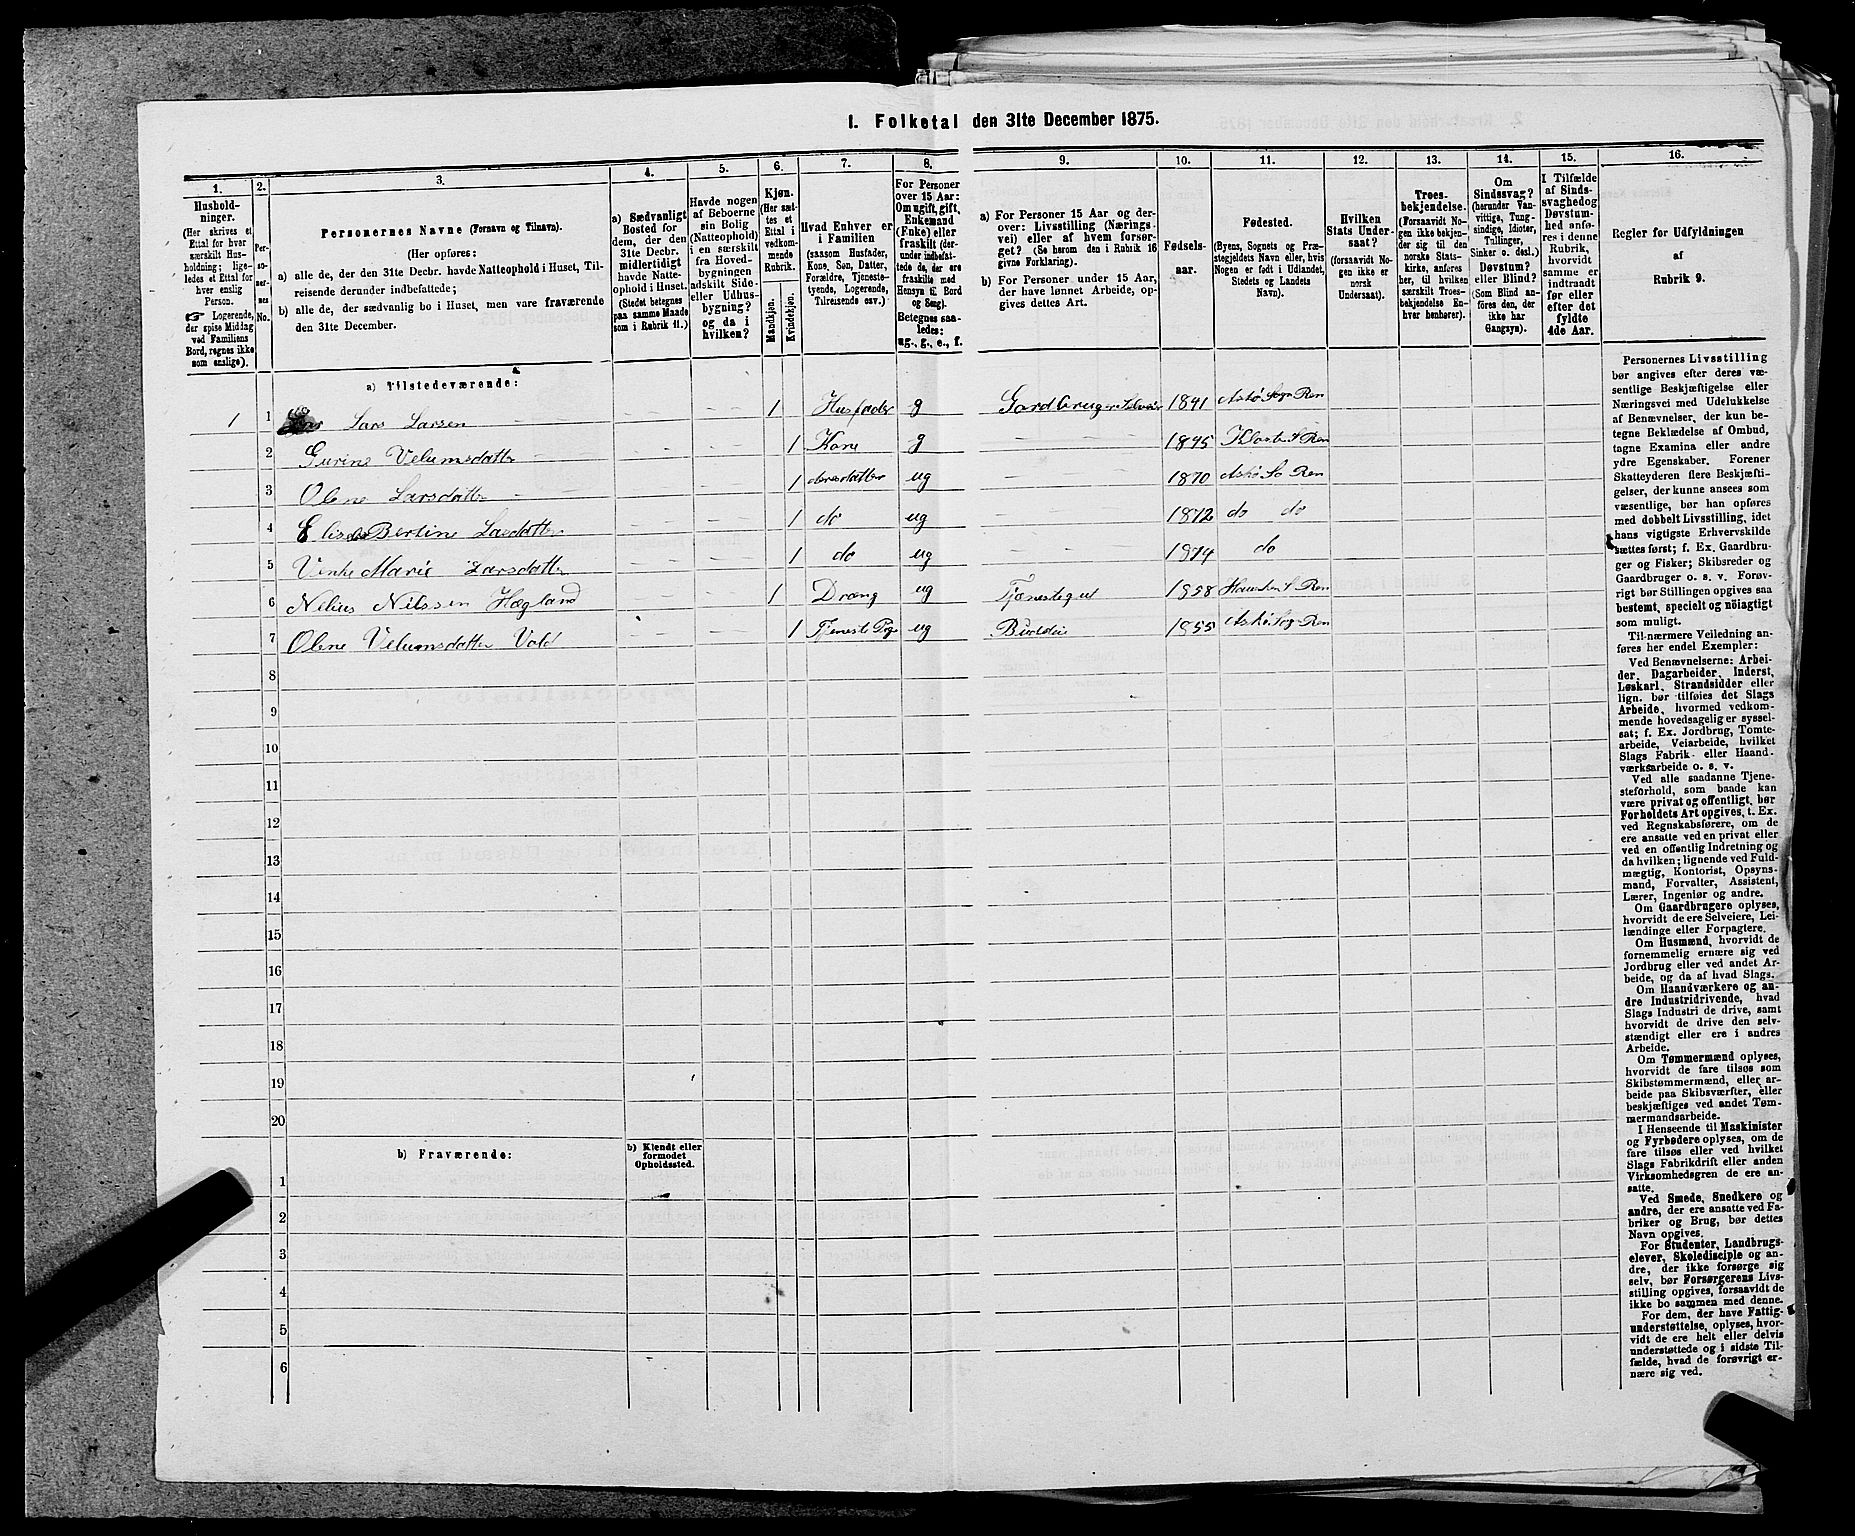 1. Folketal den 31te December 1875.
1. 2. 3. 4. 5. 6. 7. 8. 9. 10. 11. 12. 13. 14. 15. 16.
Hushold-
ninger.
(Her skrives et
Ettal for hver
særskilt Hus-
holdning; lige-
ledes et Ettal for
hver enslig
Person.
☞ Logerende,
der spise Middag
ved Familiens
Bord, regnes ikke
som enslige).
Per-
so-
ner-
nes
No.
Personernes Navne (Fornavn og Tilnavn).
(Her opføres:
a) alle de, der den 31te Decbr. havde Natteophold i Huset, Til-
reisende derunder indbefattede;
b) alle de, der sædvanlig bo i Huset, men vare fraværende
den 31te December.
a) Sædvanligt
Bosted for
dem, der den
31te Decbr.
midlertidigt
havde Natte-
ophold i Huset.
(Stedet betegnes
paa samme Maade
som i Rubrik 11.)
Havde nogen
af Beboerne
sin Bolig
(Natteophold)
i en særskilt
fra Hoved-
bygningen
adskilt Side-
eller Udhus-
bygning?
og da i
hvilken?
Kjøn.
(Her sæt-
tes et
Ettal i
vedkom-
mende
Rubrik.
Mandkjøn.
Kvindekjøn.
Hvad Enhver er
i Familien
(saasom Husfader,
Kone, Søn, Datter,
Forældre, Tjeneste-
tyende, Logerende,
Tilreisende osv.)
For Personer
over 15 Aar:
Om ugift, gift,
Enkemand
(Enke) eller
fraskilt (der-
under indbefat-
tede de, der ere
fraskilte med
Hensyn til Bord
og Seng).
Betegnes saa-
ledes:
ug., g., e., f.
a) For Personer 15 Aar og der-
over: Livsstilling (Nærings-
vei) eller af hvem forsør-
get? (Se herom den i Rubrik 16
givne Forklaring).
b) For Personer under 15 Aar,
der have lønnet Arbeide, op-
gives dettes Art.
Fødsels-
aar.
Fødested.
(Byens, Sognets og Præ-
stegjeldets Navn eller, hvis
Nogen er født i Udlandet,
Stedets og Landets
Navn).
Hvilken
Stats Under-
saat?
(forsaavidt No-
gen ikke er
norsk
Undersaat).
Troes-
bekjendelse.
(Forsaavidt No-
gen ikke bekjen-
der sig til den
norske Stats-
kirke, anføres
her, til hvilken
særskilt Troes-
bekjendelse En-
hver henhører).
Om
Sindssvag?
(herunder Van-
vittige, Tung-
sindige, Idioter,
Tullinger,
Sinker o. desl.)
Døvstum?
eller Blind?
(Som Blind an-
føres den, der
ikke har
Gangsyn).
I Tilfælde
af Sinds-
svaghed og
Døvstum-
hed anfø-
res i denne
Rubrik,
hvorvidt
samme er
indtraadt
før eller
efter det
fyldte
4de Aar.
Regler for Udfyldningen
af
Rubrik 9.
a) Tilstedeværende:
1 1 Lars Larsen 1 Husfader g Gardbruger Selveier 1841 Askø Sogn Ren
2 Gurine Velumsdatter 1 Kone g 1845 S Ren
3 Olene Larsdatter 1 deresdatter ug 1870 Askø So Ren
4 Bertine Larsdatter 1 do ug 1872 do do
5 Marie Larsdatter 1 do ug 1874 do
6 Nelius Nilssen Hægland 1 Dreng ug Tjenestegut 1858 S Ren
7 Olene Velumsdatter Vold 1 Tjeneste Pige ug Budeie 1855 Askø Sogn Ren
8
9
10
11
12
13
14
15
16
17
18
19
20
b) Fraværende:
b) Kjendt eller
formodet
Opholdssted.
1
2
3
4
5
6
Personernes Livsstilling
bør angives efter deres væ-
sentlige Beskjæftigelse eller
Næringsvei med Udelukkelse
af Benævnelser, der kun be-
tegne Beklædelse af Ombud,
tagne Examina eller andre
ydre Egenskaber. Forener
Skatteyderen flere Beskjæfti-
gelser, der kunne ansees som
væsentlige, bør han opføres
med dobbelt Livsstilling, idet
hans vigtigste Erhvervskilde
sættes først; f. Ex. Gaardbru-
ger og Fisker; Skibsreder og
Gaardbruger o. s. v. Forøv-
rigt bør Stillingen opgives saa
bestemt, specielt og nøiagtigt
som muligt.
Til nærmere Veiledning an-
føres her endel Exempler:
Ved Benævnelserne: Arbei-
der, Dagarbeider, Inderst,
Løskarl, Strandsidder eller
lign. bør tilføies det Slags
Arbeide, hvormed vedkom-
mende hovedsagelig er syssel-
sat; f. Ex. Jordbrug, Tomte-
arbeide, Veiarbeide, hvilket
Slags Fabrik- eller Haand-
værksarbeide o. s. v.
Ved alle saadanne Tjene-
steforhold, som baade kan
være privat og offentligt, bør
Forholdets Art opgives, t. Ex.
ved Regnskabsførere, om de
ere ansatte ved en privat eller
ved en offentlig Indretning og
da hvilken; lignende ved Fuld-
mægtig, Kontorist, Opsyns-
mand, Forvalter, Assistent,
Lærer, Ingeniør og andre.
Om Gaardbrugere oplyses,
hvorvidt de ere Selveiere, Lei-
lændinge eller Forpagtere.
Om Husmænd, hvorvidt de
fornemmelig ernære sig ved
Jordbrug eller ved andet Ar-
beide, og da af hvad Slags.
Om Haandværkere og an-
dre Industridrivende, hvad
Slags Industri de drive, samt
hvorvidt de drive den selv-
stændigt eller ere i andres
Arbeide.
Om Tømmermænd oplyses,
hvorvidt de fare tilsøs som
Skibstømmermænd, eller ar-
beide paa Skibsværfter, eller
beskjæftiges ved andet Tøm-
mermandsarbeide.
I Henseende til Maskinister
og Fyrbødere oplyses, om de
fare tilsøs eller ved hvilket
Slags Fabrikdrift eller anden
Virksomhedsgren de ere an-
satte.
Ved Smede, Snedkere og
andre, der ere ansatte ved Fa-
briker og Brug, bør dettes
Navn opgives.
For Studenter, Landbrugs-
elever, Skoledisciple og an-
dre, der ikke forsørge sig
selv, bør Forsørgerens Livs-
stilling opgives, forsaavidt de
ikke bo sammen med denne.
For dem, der have Fattig-
understøttelse, oplyses, hvor-
vidt de ere helt eller delvis
understøttede og i sidste Til-
fælde, hvad de forøvrigt er-
nære sig ved.